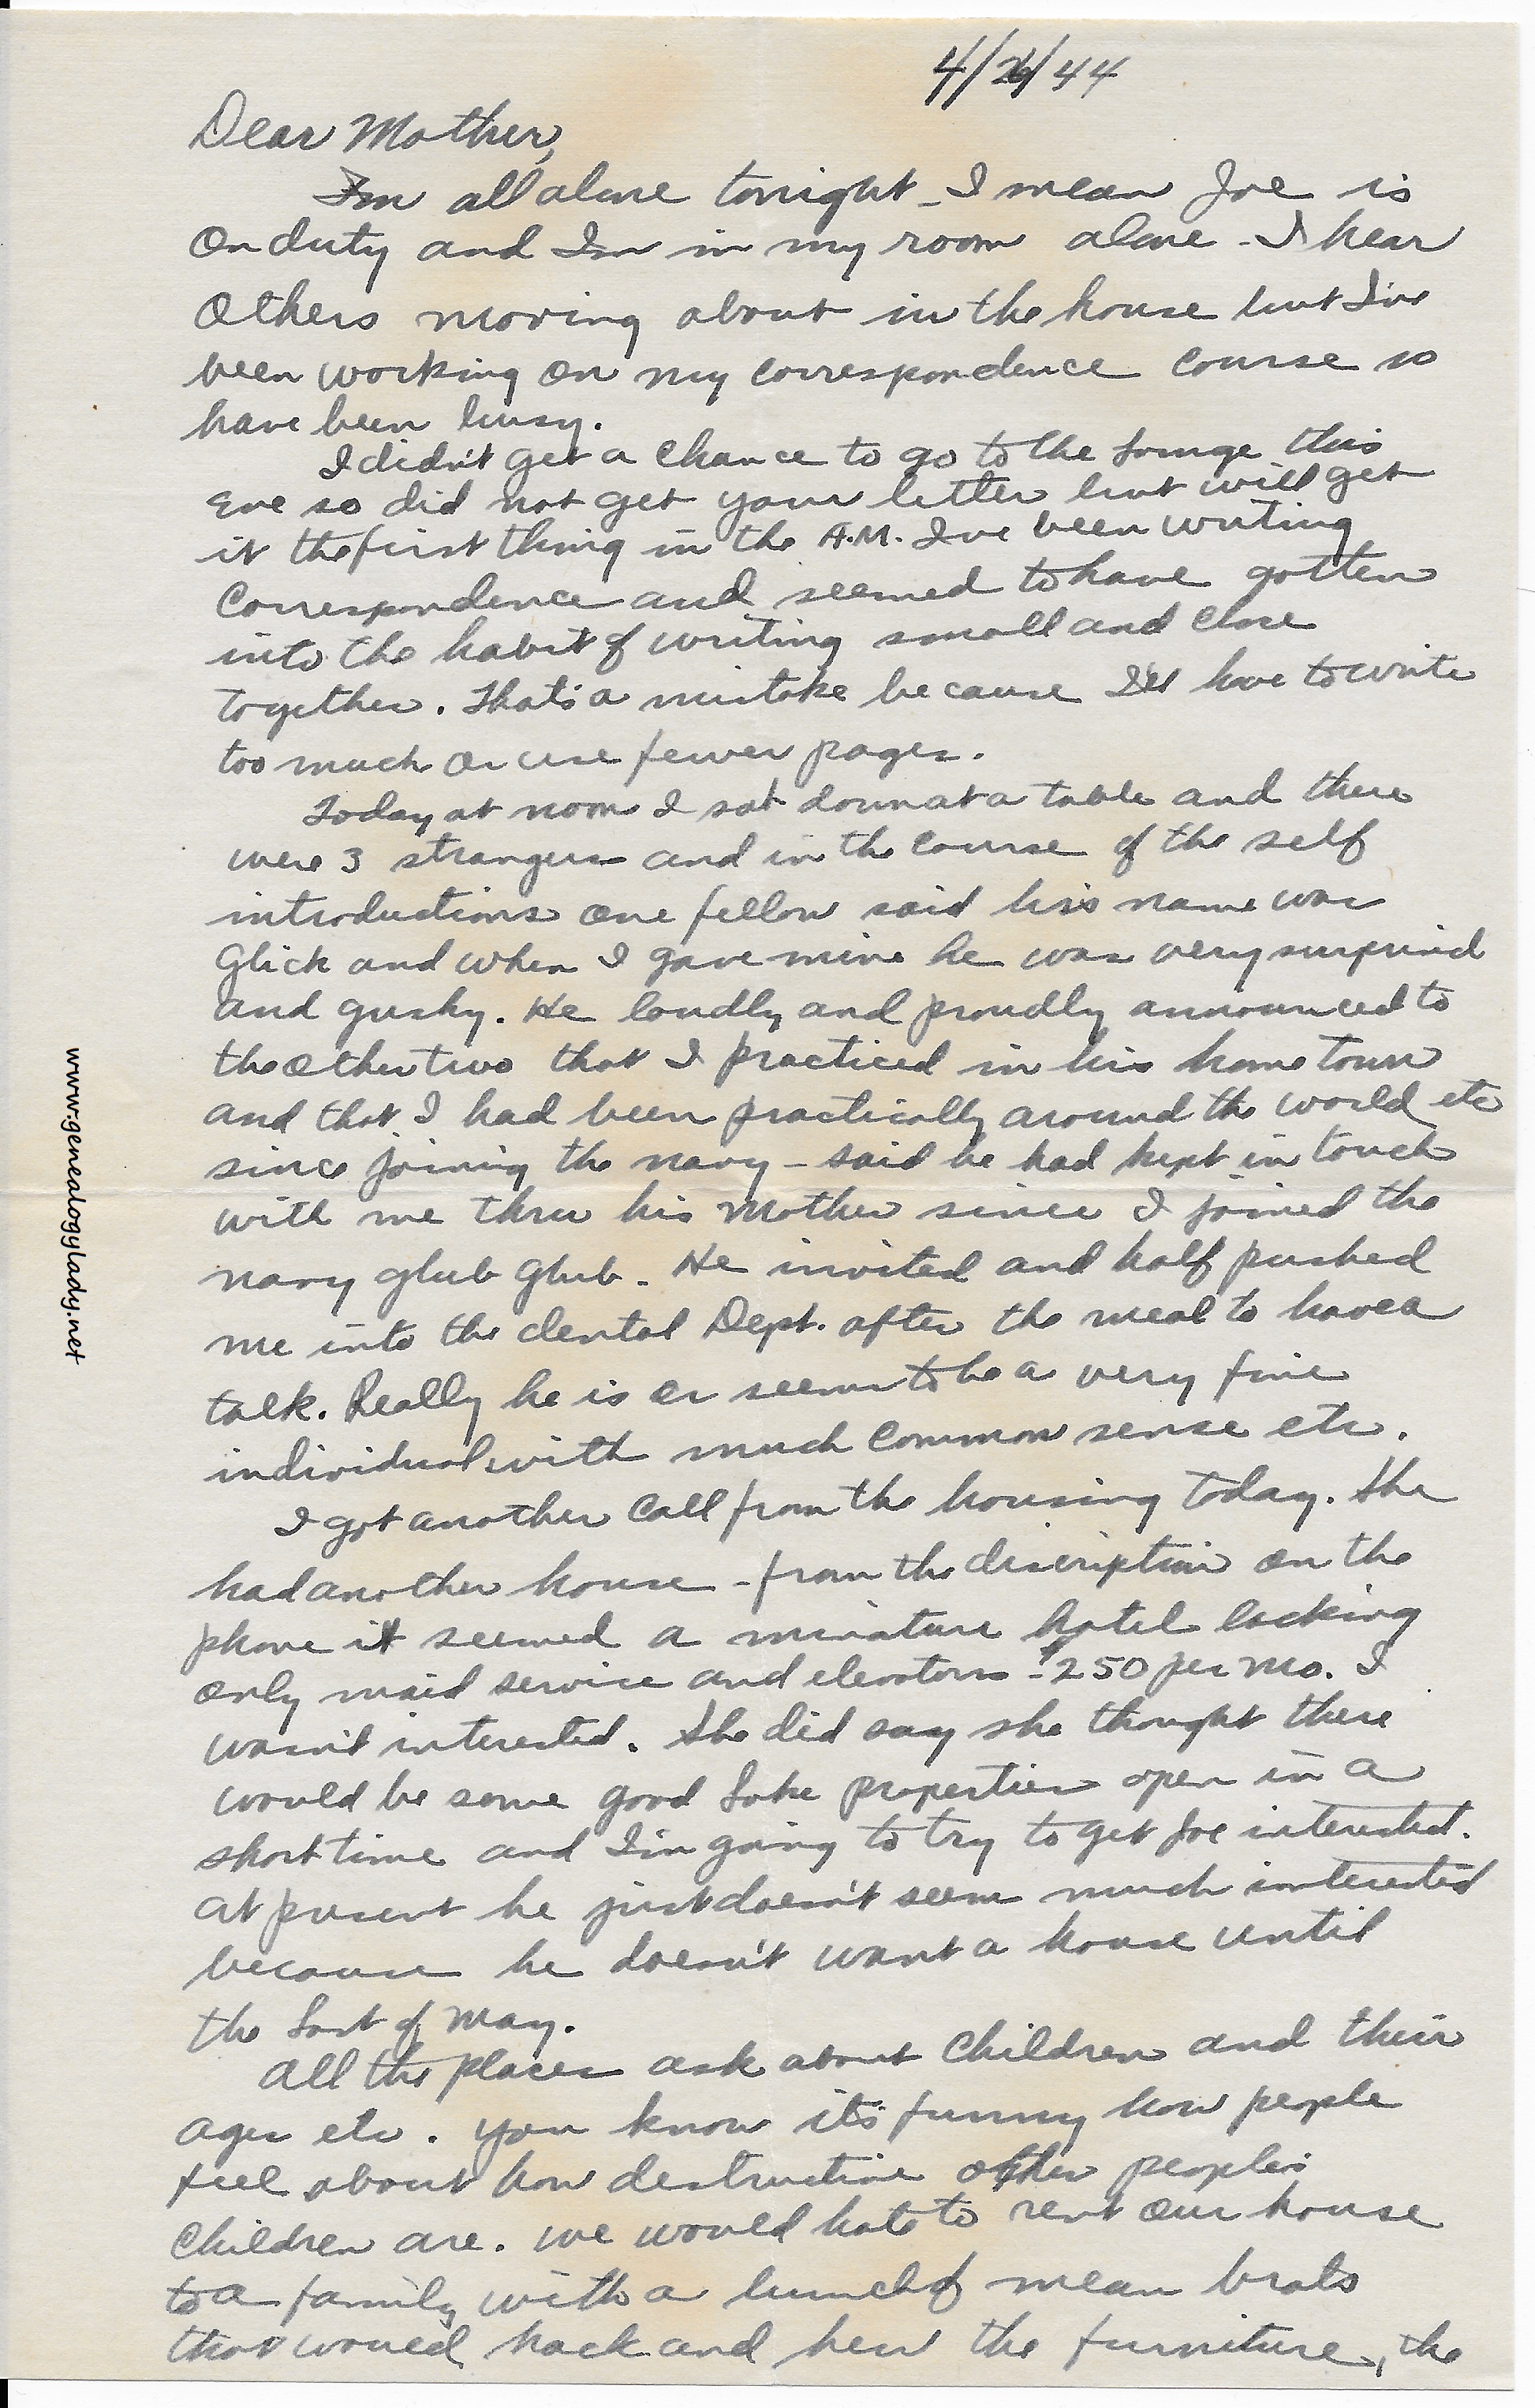 4/26/44
Dear Mother,
Im all alone tonight - I mean Joe is
on duty and Im in my room alone - I hear
others moving about in the house but I've
been working on my correspondence course so
have been busy.
I didn't get a chance to go to the Lounge this
eve so did not get your letter but will get
it the first thing in the A.M. I've been writing
correspondence and seemed to have gotten
into the habit of writing small and close
together. That's a mistake because I'll have to write
too much or use fewer pages.
Today at noon I sat down at a table and there
were 3 strangers and in the course of the self
introductions one fellow said his name was
Glick and when I gave mine he was very surprised
and gushy. He loudly and proudly announced to
the other two that I practiced in his home town
and that I had been practically around the world etc
since joining the navy - said he had kept in touch
with me thru his Mother since I joined the
navy glub glub - He invited and half pushed
me into the dental Dept. after the meal to have a
talk. Really he is or seems to be a very fine
individual with much common sense etc.
I got another call from the housing today. She
had another house - from the discription on the
phone it seemed a miniature hotel lacking
only maid service and elevators - $250 per mo. I
wasn't interested. She did say she thought there
would be some good Lake properties open in a
short time and I'm going to try to get Joe interested.
At present he just doesn't seem much interested
because he doesn't want a house until
the last of May.
All the places ask about children and their
ages etc. You know it's funny how people
feel about how destructive other peoples
children are. We would hate to rent our house
to a family with a bunch of mean brats
that would hack and hew the furniture, the
www.genealogylady.net